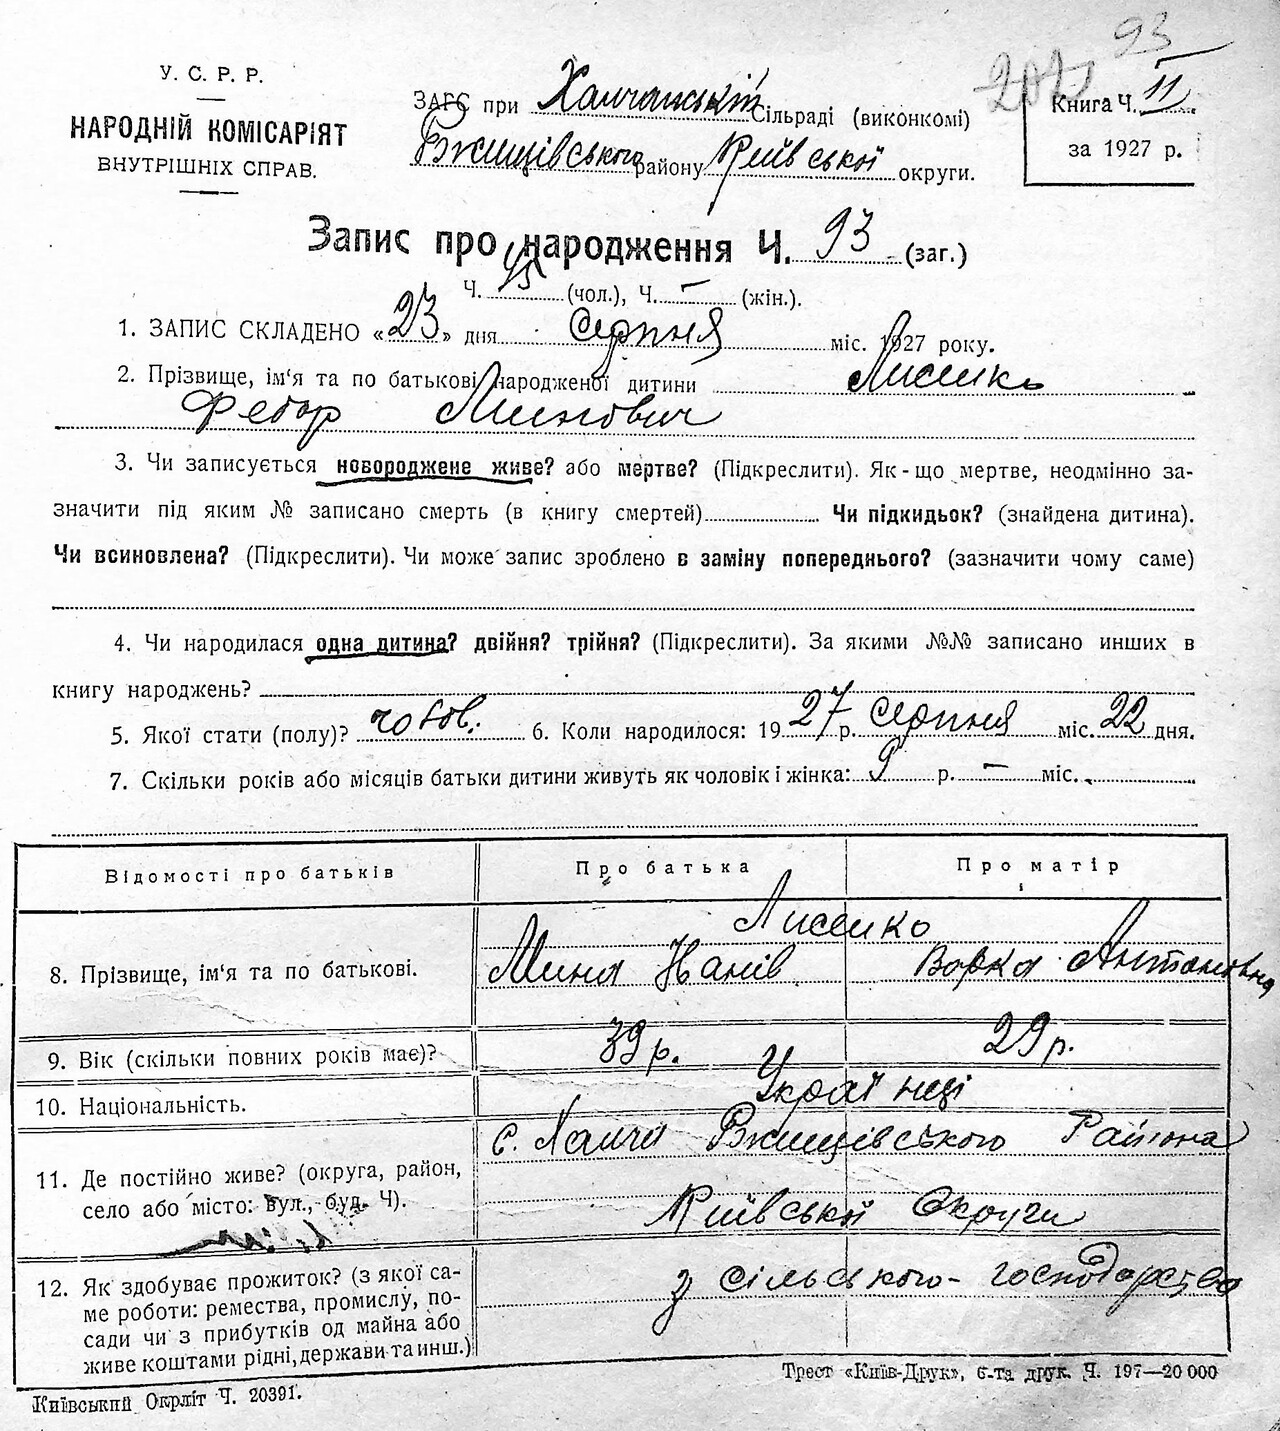 93
У. С. Р. Р.
НАРОДНІЙ КОМІСАРІЯТ
ВНУТРІШНІХ СПРАВ.
ЗАГС при Халчанській Сільраді (виконкомі)
Ржищівського району Київської округи.
Книга Ч. 11
за 1927 р.
Запис про народження Ч. 93 (заг.)
Ч. 45 (чол.), Ч. – (жін.).
1. ЗАПИС СКЛАДЕНО «23» дня серпня міс. 1927 року.
2. Прізвище, ім‘я та по батькові народженої дитини Лисенко
Федор Минович
3. Чи записується новороджене живе? або мертве? (Підкреслити). Як-що мертве, неодмінно за-
значити під яким № записано смерть (в книгу смертей) Чи підкидьок? (знайдена дитина).
Чи всиновлена? (Підкреслити). Чи може запис зроблено в заміну попереднього? (зазначити чому саме)
4. Чи народилася одна дитина? двійня? трійня? (Підкреслити). За якими №№ записано инших в
книгу народжень?
5. Якої стати (полу)? чолов. 6. Коли народилося: 1927 р. серпня міс. 22 дня.
7. Скільки років або місяців батьки дитини живуть як чоловік і жінка: 9 р. – міс.
Відомості про батьків Про батька Про матір
Лисенко
8. Прізвище, ім‘я та по батькові. Мина ІванівВорка Антоновна
9. Вік (скільки повних років має)? 39 р. 29 р.
10. Національність. Українці
11. Де постійно живе? (округа, район, с. Халча Ржищівського Района
село або місто: вул., буд. Ч). Київської Округи
12. Як здобуває прожиток? (з якої са- з сільського-господарства
ме роботи: ремества, промислу, по-
сади чи з прибутків од майна або
живе коштами рідні, держави та инш.)
Київський Окрліт Ч. 20391.
Трест «Київ-Друк», 6-та друк. Ч. 197—20 000